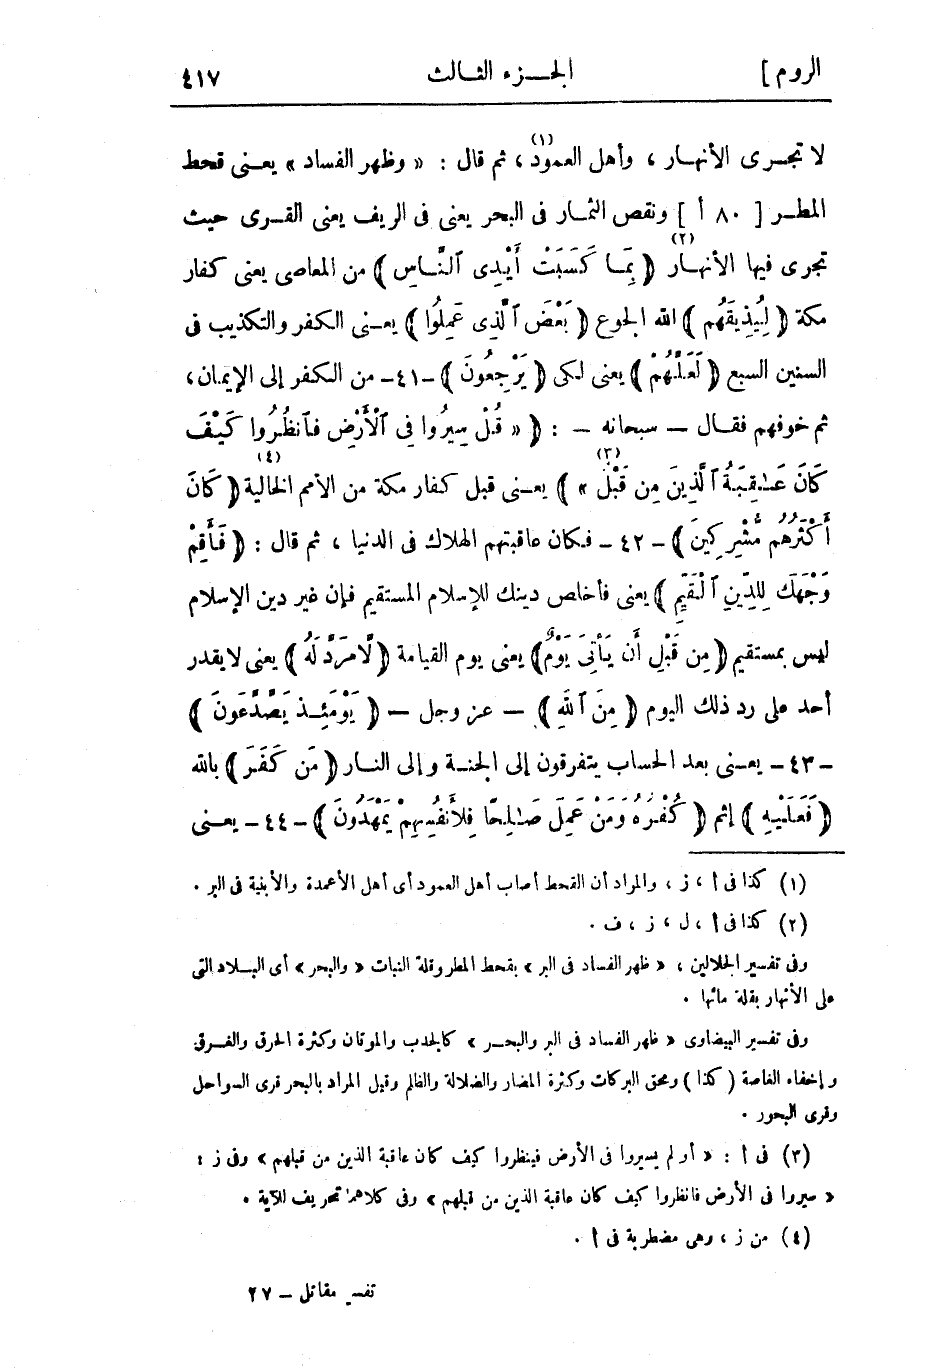 الروم ]
الجزء الثالث
٤١٧
لا تجرى الأنهار ، وأهل العمود (١) ، ثم قال : « وظهر الفساد » يعنى قحط
المطر [ ٨٠ أ ] ونقص الثمار فى البحر يعنى فى الريف يعنى القرى حيث
تجرى فيها الأنهار (٢) ﴿ بِمَا كَسَبَتْ أَيْدِى ٱلنَّاسِ ﴾ من المعاصى يعنى كفار
مكة ﴿ لِيُذِيقَهُم ﴾ الله الجوع ﴿ بَعْضَ ٱلَّذِى عَمِلُوا ﴾ يعنى الكفر والتكذيب فى
السنين السبع ﴿ لَعَلَّهُمْ ﴾ يعنى لكى ﴿ يَرْجِعُونَ ﴾ -٤١- من الكفر إلى الإيمان ،
ثم خوفهم فقال — سبحانه — : ﴿ « قُلْ سِيرُوا فِى ٱلْأَرْضِ فَٱنظُرُوا كَيْفَ
كَانَ عَـٰقِبَةُ ٱلَّذِينَ مِن قَبْلُ (٣) » ﴾ يعنى قبل كفار مكة من الأمم الخالية (٤) ﴿ كَانَ
أَكْثَرُهُم مُّشْرِكِينَ ﴾ - ٤٢ - فكان عاقبتهم الهلاك فى الدنيا ، ثم قال : ﴿ فَأَقِمْ
وَجْهَكَ لِلدِّينِ ٱلْقَيِّمِ ﴾ يعنى فأخلص دينك للإسلام المستقيم فإن غير دين الإسلام
ليس بمستقيم ﴿ مِن قَبْلِ أَن يَأْتِىَ يَوْمٌ ﴾ يعنى يوم القيامة ﴿ لَّا مَرَدَّ لَهُ ﴾ يعنى لا يقدر
أحد على رد ذلك اليوم ﴿ مِنَ ٱللَّهِ ﴾ — عز وجل — ﴿ يَوْمَئِذٍ يَصَّدَّعُونَ ﴾
-٤٣- يعنى بعد الحساب يتفرقون إلى الجنة وإلى النار ﴿ مَن كَفَرَ ﴾ بالله
﴿ فَعَلَيْهِ ﴾ إثم ﴿ كُفْرُهُ وَمَنْ عَمِلَ صَـٰلِحًا فَلِأَنفُسِهِمْ يَمْهَدُونَ ﴾ - ٤٤ - يعنى
(١) كذا فى أ ، ز ، والمراد أن القحط أصاب أهل العمود أى أهل الأعمدة والأبنية فى البر .
(٢) كذا فى أ ، ل ، ز ، ف .
وفى تفسير الجلالين ، « ظهر الفساد فى البر » بقحط المطر وقلة النبات « والبحر » أى البلاد التى
على الأنهار بقلة مائها .
وفى تفسير البيضاوى « ظهر الفساد فى البر والبحر » كالجدب والموتان وكثرة الحرق والغرق
وإخفاء الغاصة ( كذا ) ومحق البركات وكثرة المضار والضلالة والظلم وقيل المراد بالبحر قرى السواحل
وقرى البحور .
(٣) فى أ : « أو لم يسيروا فى الأرض فينظروا كيف كان عاقبة الذين من قبلهم » وفى ز :
« سيروا فى الأرض فانظروا كيف كان عاقبة الذين من قبلهم » وفى كلاهما تحريف للآية .
(٤) من ز ، وهى مضطربة فى أ .
تفسير مقاتل - ٢٧